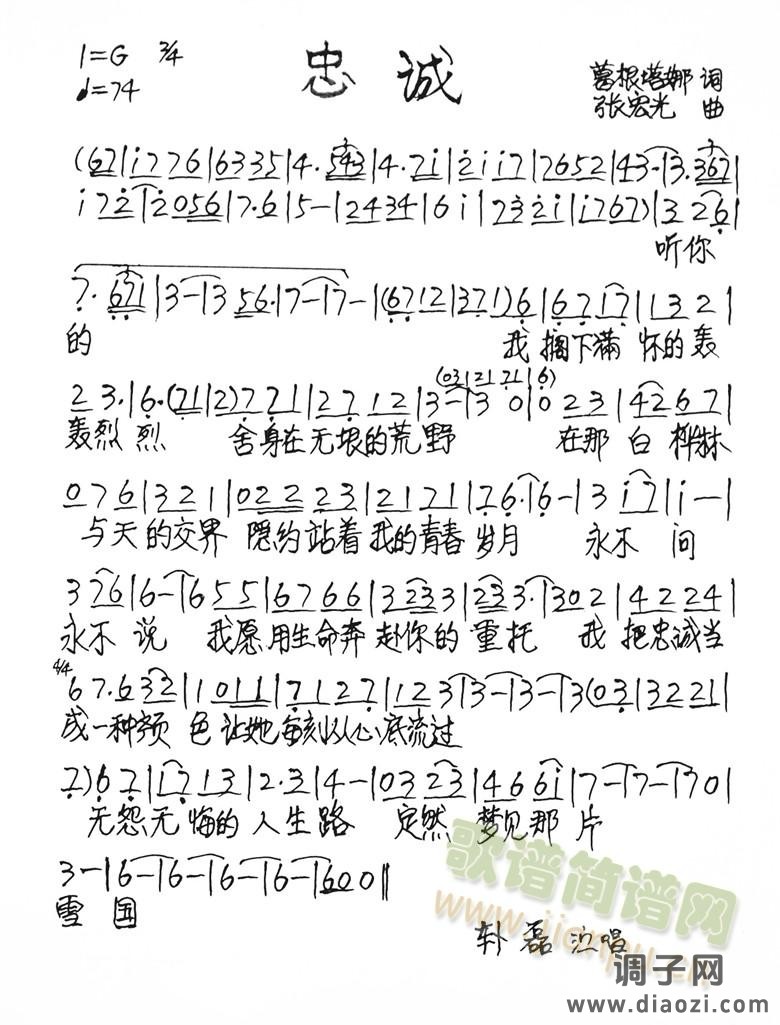 1=G 3/4
♩=74
忠诚
葛根塔娜 词
张宏光 曲
(67|i776|6335|4·543|4·7i|2ii7|7652|43-|3·367|
i72|2056|7·6|5-|2434|6i|732i|i767)|326|
听你
7·671|3-|356·|7-|7-|(6712|371)6|6717|1321|
的 我捆下满怀的轰
(03|21 21|6)
23·|6·(71|2)771|2712|3-|30|023|4267|
轰烈烈 舍身在无垠的荒野 在那白桦林
076|321|02223|2121|76·|6-|3i7|i-|
与天的交界 隐约站着我的青春岁月 永不问
376|6-|655|6766|3233|233·|302|4224|
永不说 我愿用生命奔赴你的重托 我把忠诚当
4/4
67·632|1011|7127|123|3-|3-|3(03|3221|
成一种颜色让她每刻从心底流过
7)67|1713|2·3|4-|0323|466i|7-|7-|70|
无怨无悔的人生路 定然梦见那片
3-|6-|6-|6-|6-|600‖
雪国
歌谱简谱网
www.jianpu.cn
调子网
www.diaozi.com